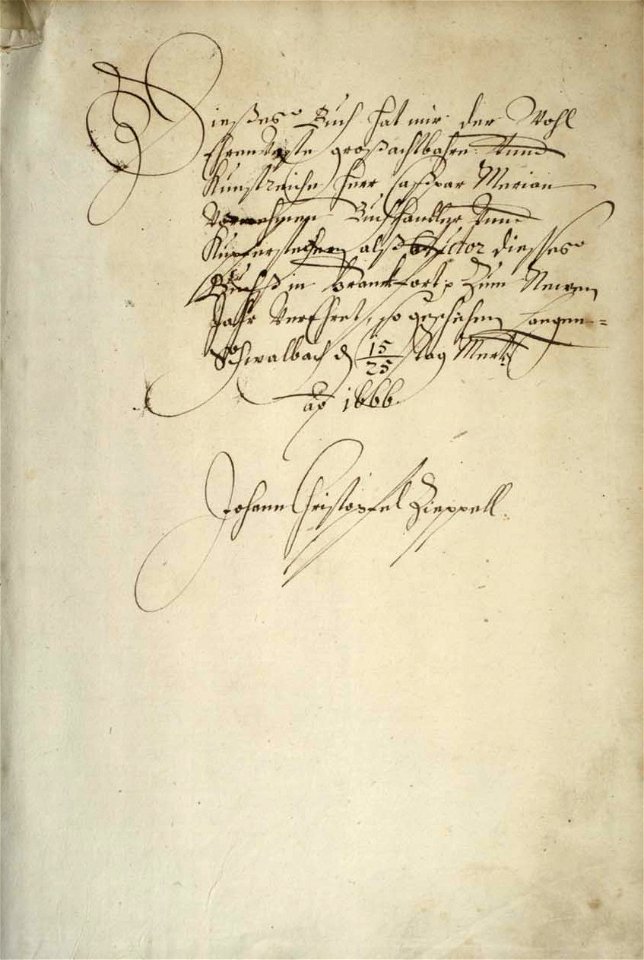 Dießes Buch hat mir der Wohl
Ehren Veste großachtbahre Vnnd
Kunstreiche Herr Caßpar Merian
Vornehmen Buchhandler Vnnd
Kupferstechern alß Auctor diesses
Buchß in Franckfort zum Newen
Jahr Verehret, so geschehen Langen=
Schwalbach d 15/25 tag Mertz
ao 1666.
Johann Christoffel Zieppell.